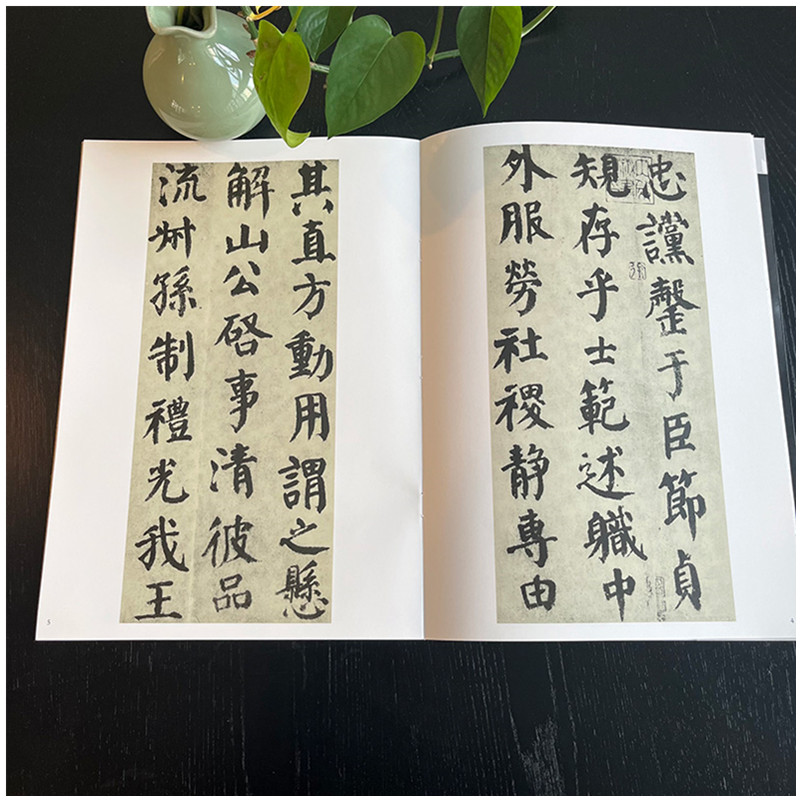 忠讜罄于臣節貞
規存乎士範述職中
外服勞社稷静專由
其直方動用謂之懸
解山公啓事清彼品
流叔孫制禮光我王
5
4